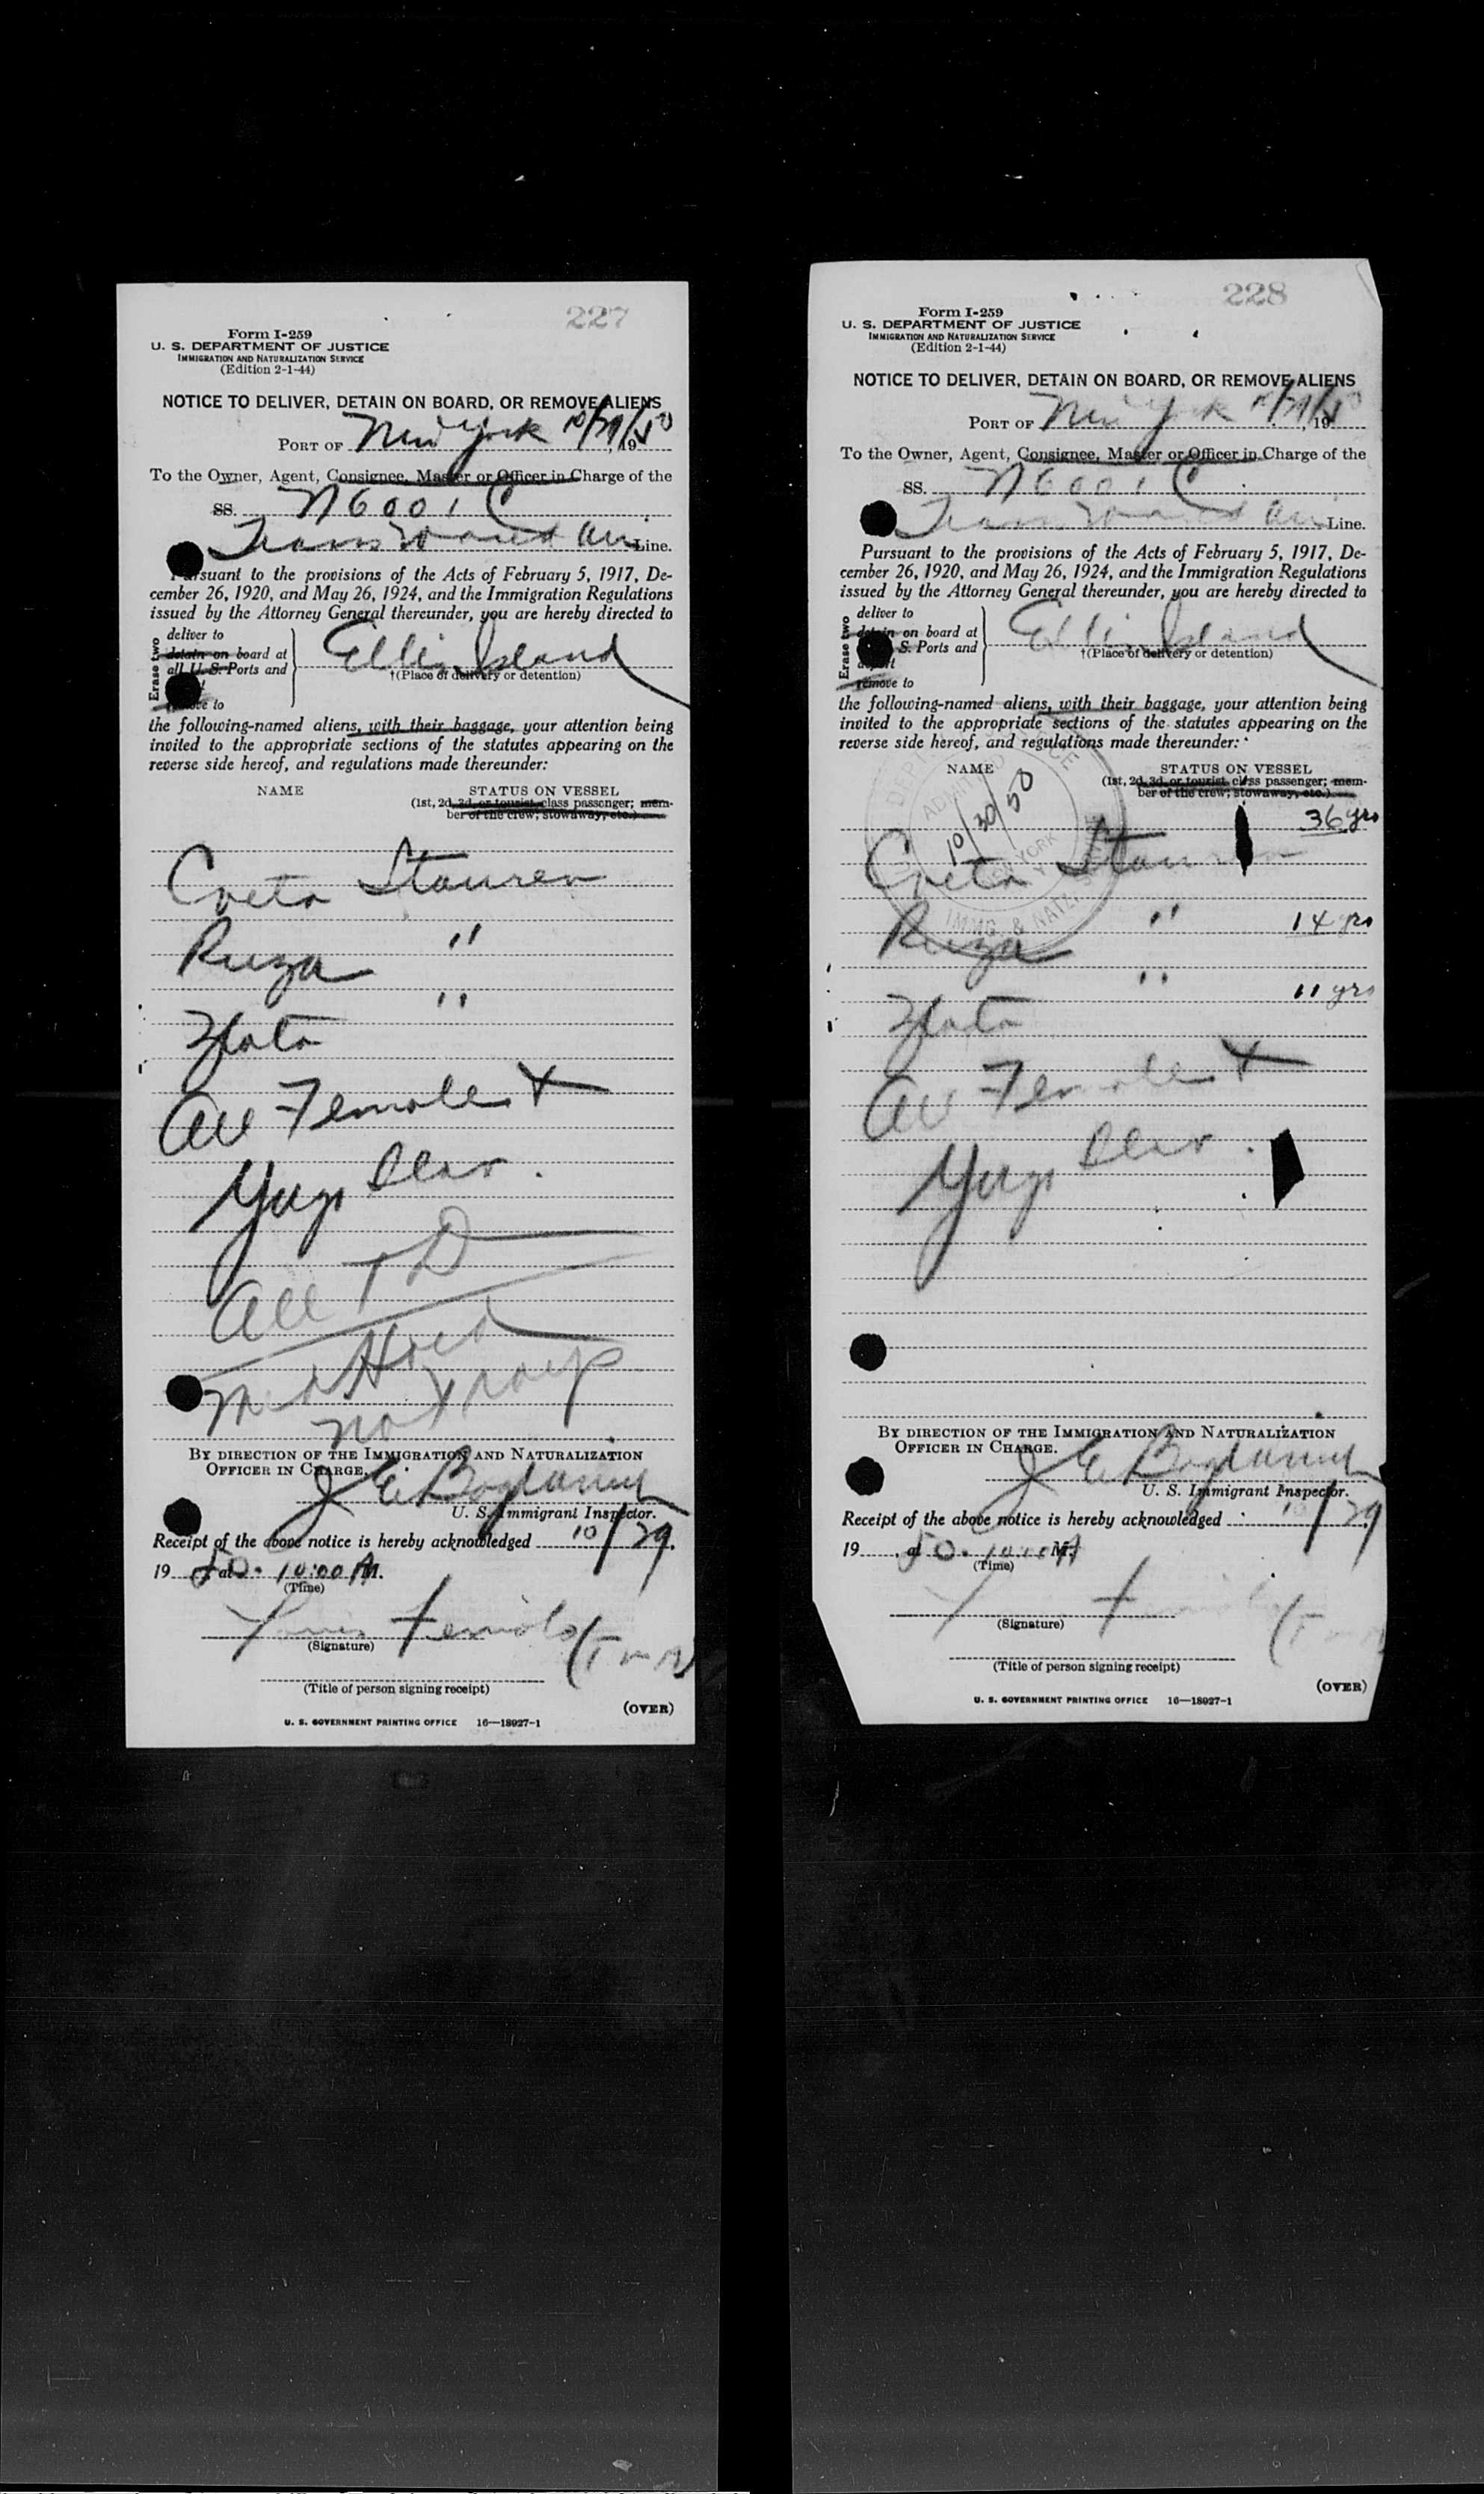 227
Form I-259
U. S. DEPARTMENT OF JUSTICE
IMMIGRATION AND NATURALIZATION SERVICE
(Edition 2-1-44)
NOTICE TO DELIVER, DETAIN ON BOARD, OR REMOVE ALIENS
PORT OF New York 10/29/50, 19
To the Owner, Agent, Consignee, Master or Officer in Charge of the
SS. N6001C
Trans World Air Line.
Pursuant to the provisions of the Acts of February 5, 1917, De-
cember 26, 1920, and May 26, 1924, and the Immigration Regulations
issued by the Attorney General thereunder, you are hereby directed to
Erase two
deliver to
detain on board at
all U. S. Ports and
remove to
Ellis Island
†(Place of delivery or detention)
the following-named aliens, with their baggage, your attention being
invited to the appropriate sections of the statutes appearing on the
reverse side hereof, and regulations made thereunder:
NAME STATUS ON VESSEL
(1st, 2d, 3d, or tourist class passenger; mem-
ber of the crew; stowaway, etc.)
Cveta Stauren
Ruza "
Zlata "
All Female
Yugo Slav.
All T D
Med Hold
no
BY DIRECTION OF THE IMMIGRATION AND NATURALIZATION
OFFICER IN CHARGE.
J E
U. S. Immigrant Inspector.
Receipt of the above notice is hereby acknowledged 10/29,
19 50 at 10:00 A M.
(Time)
(Signature)
(Title of person signing receipt)
(OVER)
U. S. GOVERNMENT PRINTING OFFICE 16—18027-1
228
Form I-259
U. S. DEPARTMENT OF JUSTICE
IMMIGRATION AND NATURALIZATION SERVICE
(Edition 2-1-44)
NOTICE TO DELIVER, DETAIN ON BOARD, OR REMOVE ALIENS
PORT OF New York 10/29/50, 19
To the Owner, Agent, Consignee, Master or Officer in Charge of the
SS. N6001C
Trans World Air Line.
Pursuant to the provisions of the Acts of February 5, 1917, De-
cember 26, 1920, and May 26, 1924, and the Immigration Regulations
issued by the Attorney General thereunder, you are hereby directed to
Erase two
deliver to
detain on board at
S. Ports and
remove to
Ellis Island
†(Place of delivery or detention)
the following-named aliens, with their baggage, your attention being
invited to the appropriate sections of the statutes appearing on the
reverse side hereof, and regulations made thereunder:
NAME STATUS ON VESSEL
(1st, 2d, 3d, or tourist class passenger; mem-
ber of the crew; stowaway, etc.)
ADMITTED
10/30/50
NEW YORK
IMMG. & NATZ.
36 yrs
Cveta Stauren
Ruza " 14 yrs
Zlata " 11 yrs
All Female
Yugo Slav.
BY DIRECTION OF THE IMMIGRATION AND NATURALIZATION
OFFICER IN CHARGE.
J E
U. S. Immigrant Inspector.
Receipt of the above notice is hereby acknowledged 10/29,
19 50 at 10:00 A M.
(Time)
(Signature)
(Title of person signing receipt)
(OVER)
U. S. GOVERNMENT PRINTING OFFICE 16—18027-1